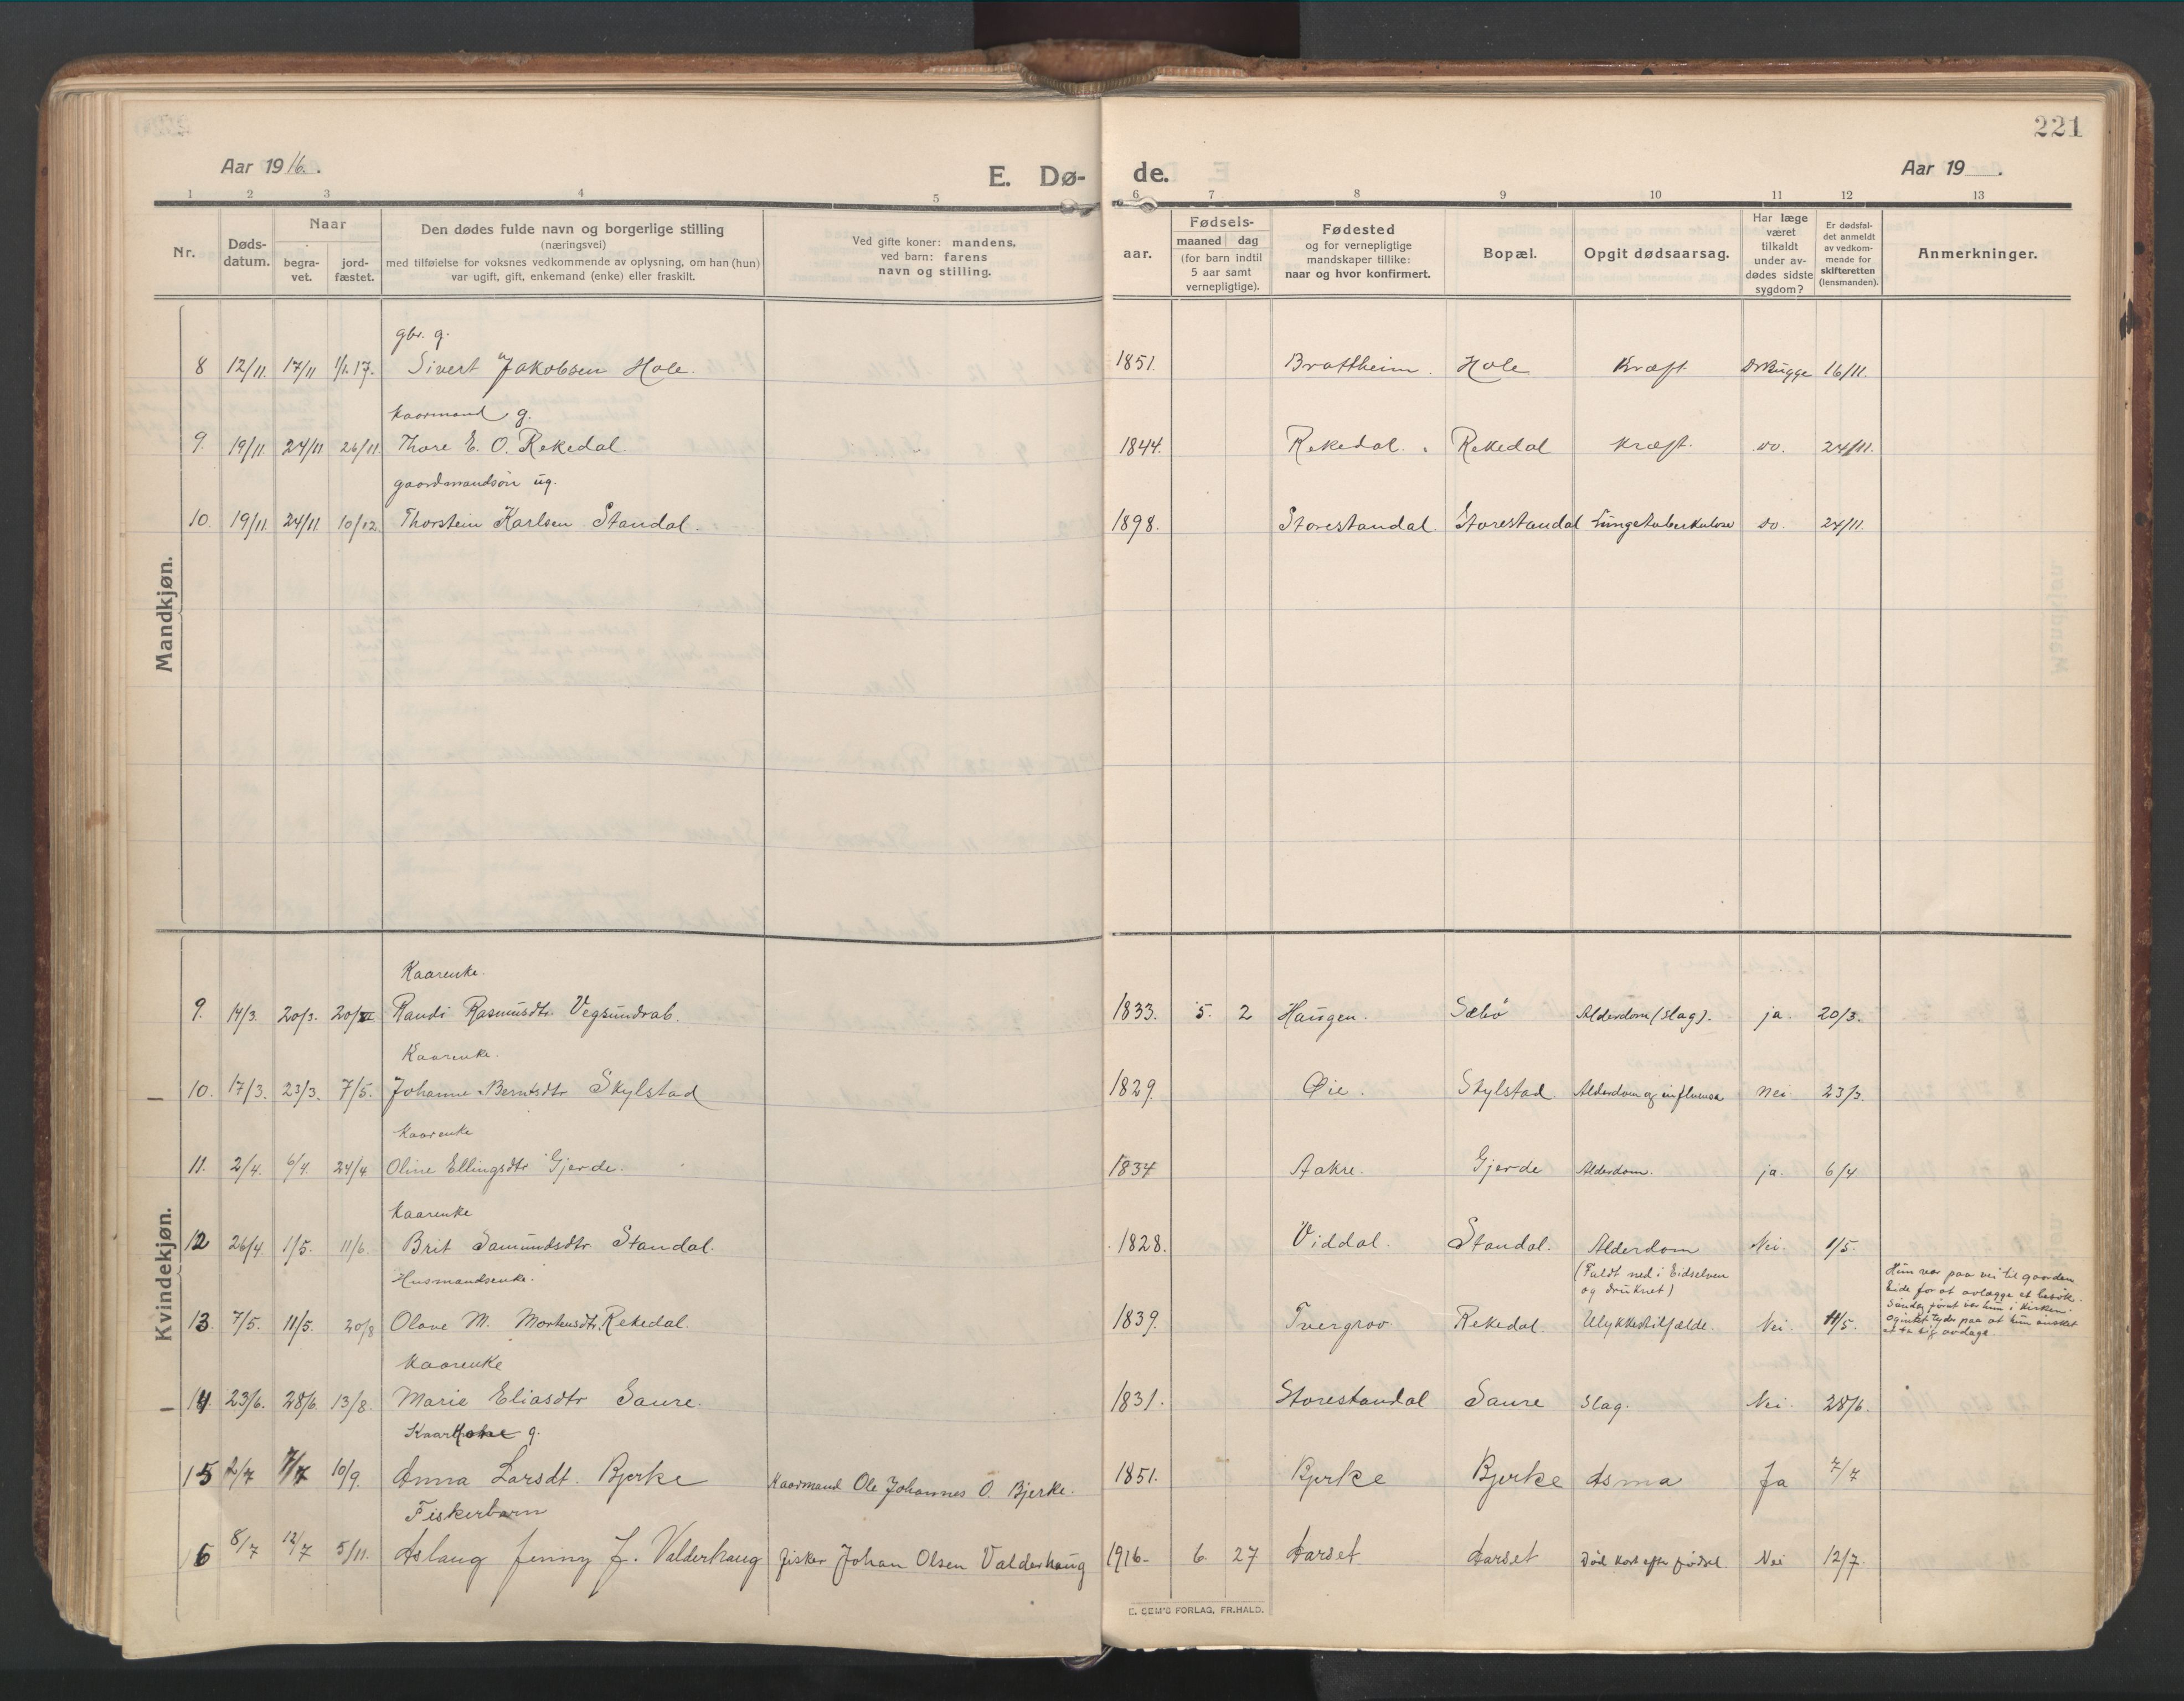 221
Aar 1916.
E. Dø-
de.
Aar 19 .
1 2 3 4 5 6 7 8 9 10 11 12 13
Nr.
Døds-
datum.
Naar
begra-
vet.
jord-
fæstet.
Den dødes fulde navn og borgerlige stilling
(næringsvei)
med tilføielse for voksnes vedkommende av oplysning, om han (hun)
var ugift, gift, enkemand (enke) eller fraskilt.
Ved gifte koner: mandens.
ved barn: farens
navn og stilling.
aar.
Fødsels-
maaned dag
(for barn indtil
5 aar samt
vernepligtige).
Fødested
og for vernepligtige
mandskaper tillike:
naar og hvor konfirmert.
Bopæl.
Opgit dødsaarsag.
Har læge
været
tilkaldt
under av-
dødes sidste
sygdom?
Er dødsfal-
det anmeldt
av vedkom-
mende for
skifteretten
(lensmanden).
Anmerkninger.
Mandkjøn.
gbr. g.
8 12/11. 17/11 1/1.17. Sivert Jakobsen Hole. 1851. Brattheim. Hole Kræft. 16/11.
Kaarmand g.
9. 19/11. 24/11 26/11. Thore E. O. Rekedal. 1844. Rekedal. Rekedal Kræft. do. 24/11.
gaardmandsøn ug.
10. 19/11. 24/11 10/12. Thorstein Karlsen Standal. 1898. Storestandal. Storestandal Lungetuberkulose do. 24/11.
Kvindekjøn.
Kaarenke.
9. 14/3. 20/3. 20/VI Randi Rasmusdtr. Vegsundrab. 1833. 5. 2 Haugen. Sæbø Alderdom (slag). ja. 20/3.
Kaarenke.
10. 17/3. 23/3. 7/5. Johanne Berntsdtr Skylstad 1829. Øie. Skylstad Alderdom og influensa Nei. 23/3.
Kaarenke
11. 2/4. 6/4. 24/4 Oline Ellingsdtr Gjerde. 1834 Aakre. Gjerde Alderdom. ja. 6/4
Kaarenke
12 26/4. 1/5. 11/6. Brit Samundsdtr. Standal. 1828. Viddal. Standal. Alderdom Nei. 1/5.
Husmandsenke.
(Faldt ned i Eidselven
og druknet)
13. 7/5. 11/5. 20/8 Olave M. Mortensdtr. Rekedal. 1839. Tvergrov. Rekedal. Ulykkestilfælde. Nei. 11/5.
Hun var paa vei til gaarden
Eide for at avlægge et besøk.
Søndag forut var hun i kirken.
og intet tyder paa at hun ønsket
at ta sig avdage.
Kaarenke
14. 23/6. 28/6. 13/8. Marie Eliasdtr Saure. 1831. Storestandal Saure Slag. Nei. 28/6.
Kaarkone g.
15 2/7 7/7 10/9. Anna Larsdt. Bjerke Kaarmand Ole Johannes O. Bjerke. 1851. Bjerke Bjerke Asma Ja 7/7
Fiskerbarn
16 8/7 12/7 5/11. Aslaug Jenny J. Valderhaug fisker Johan Olsen Valderhaug 1916- 6. 27 Aarset Aarset Død kort efter fødsel. Nei 12/7.
E. SEM'S FORLAG, FR.HALD.